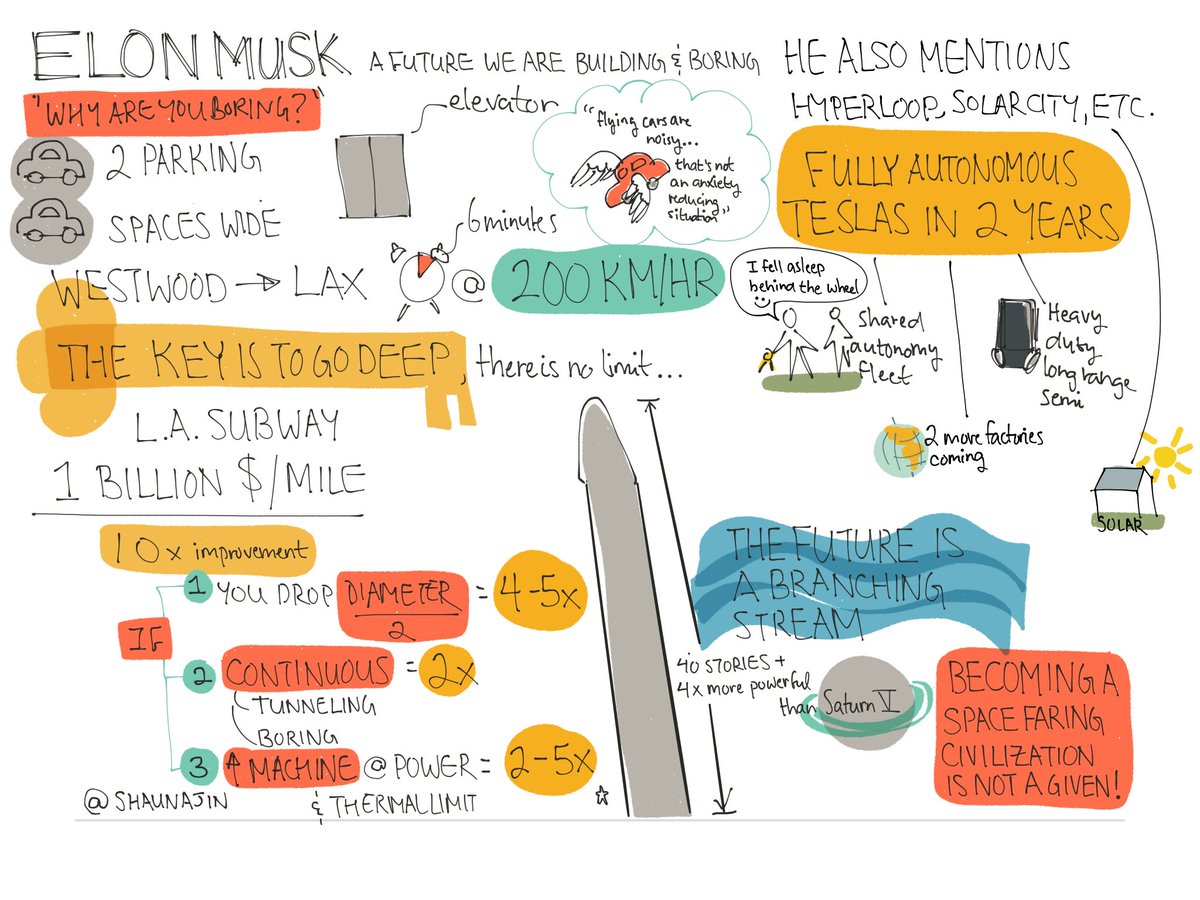 ELON MUSK A FUTURE WE ARE BUILDING & BORING
"WHY ARE YOU BORING?"
elevator
2 PARKING
SPACES WIDE
"flying cars are
noisy...
that's not
an anxiety
reducing
situation"
6 minutes
WESTWOOD → LAX @ 200 KM/HR
THE KEY IS TO GO DEEP, there is no limit...
L.A. SUBWAY
1 BILLION $/MILE
10x improvement
IF
1 YOU DROP DIAMETER/2 = 4-5x
2 CONTINUOUS = 2x
TUNNELING
BORING
3 ↑ MACHINE @ POWER = 2-5x
& THERMAL LIMIT
@SHAUNAJIN
HE ALSO MENTIONS
HYPERLOOP, SOLARCITY, ETC.
FULLY AUTONOMOUS
TESLAS IN 2 YEARS
I fell asleep
behind the wheel
Shared
autonomy
fleet
Heavy
duty
long range
semi
2 more factories
coming
SOLAR
THE FUTURE IS
A BRANCHING
STREAM
40 STORIES +
4x more powerful
than Saturn V
BECOMING A
SPACE FARING
CIVILIZATION
IS NOT A GIVEN!